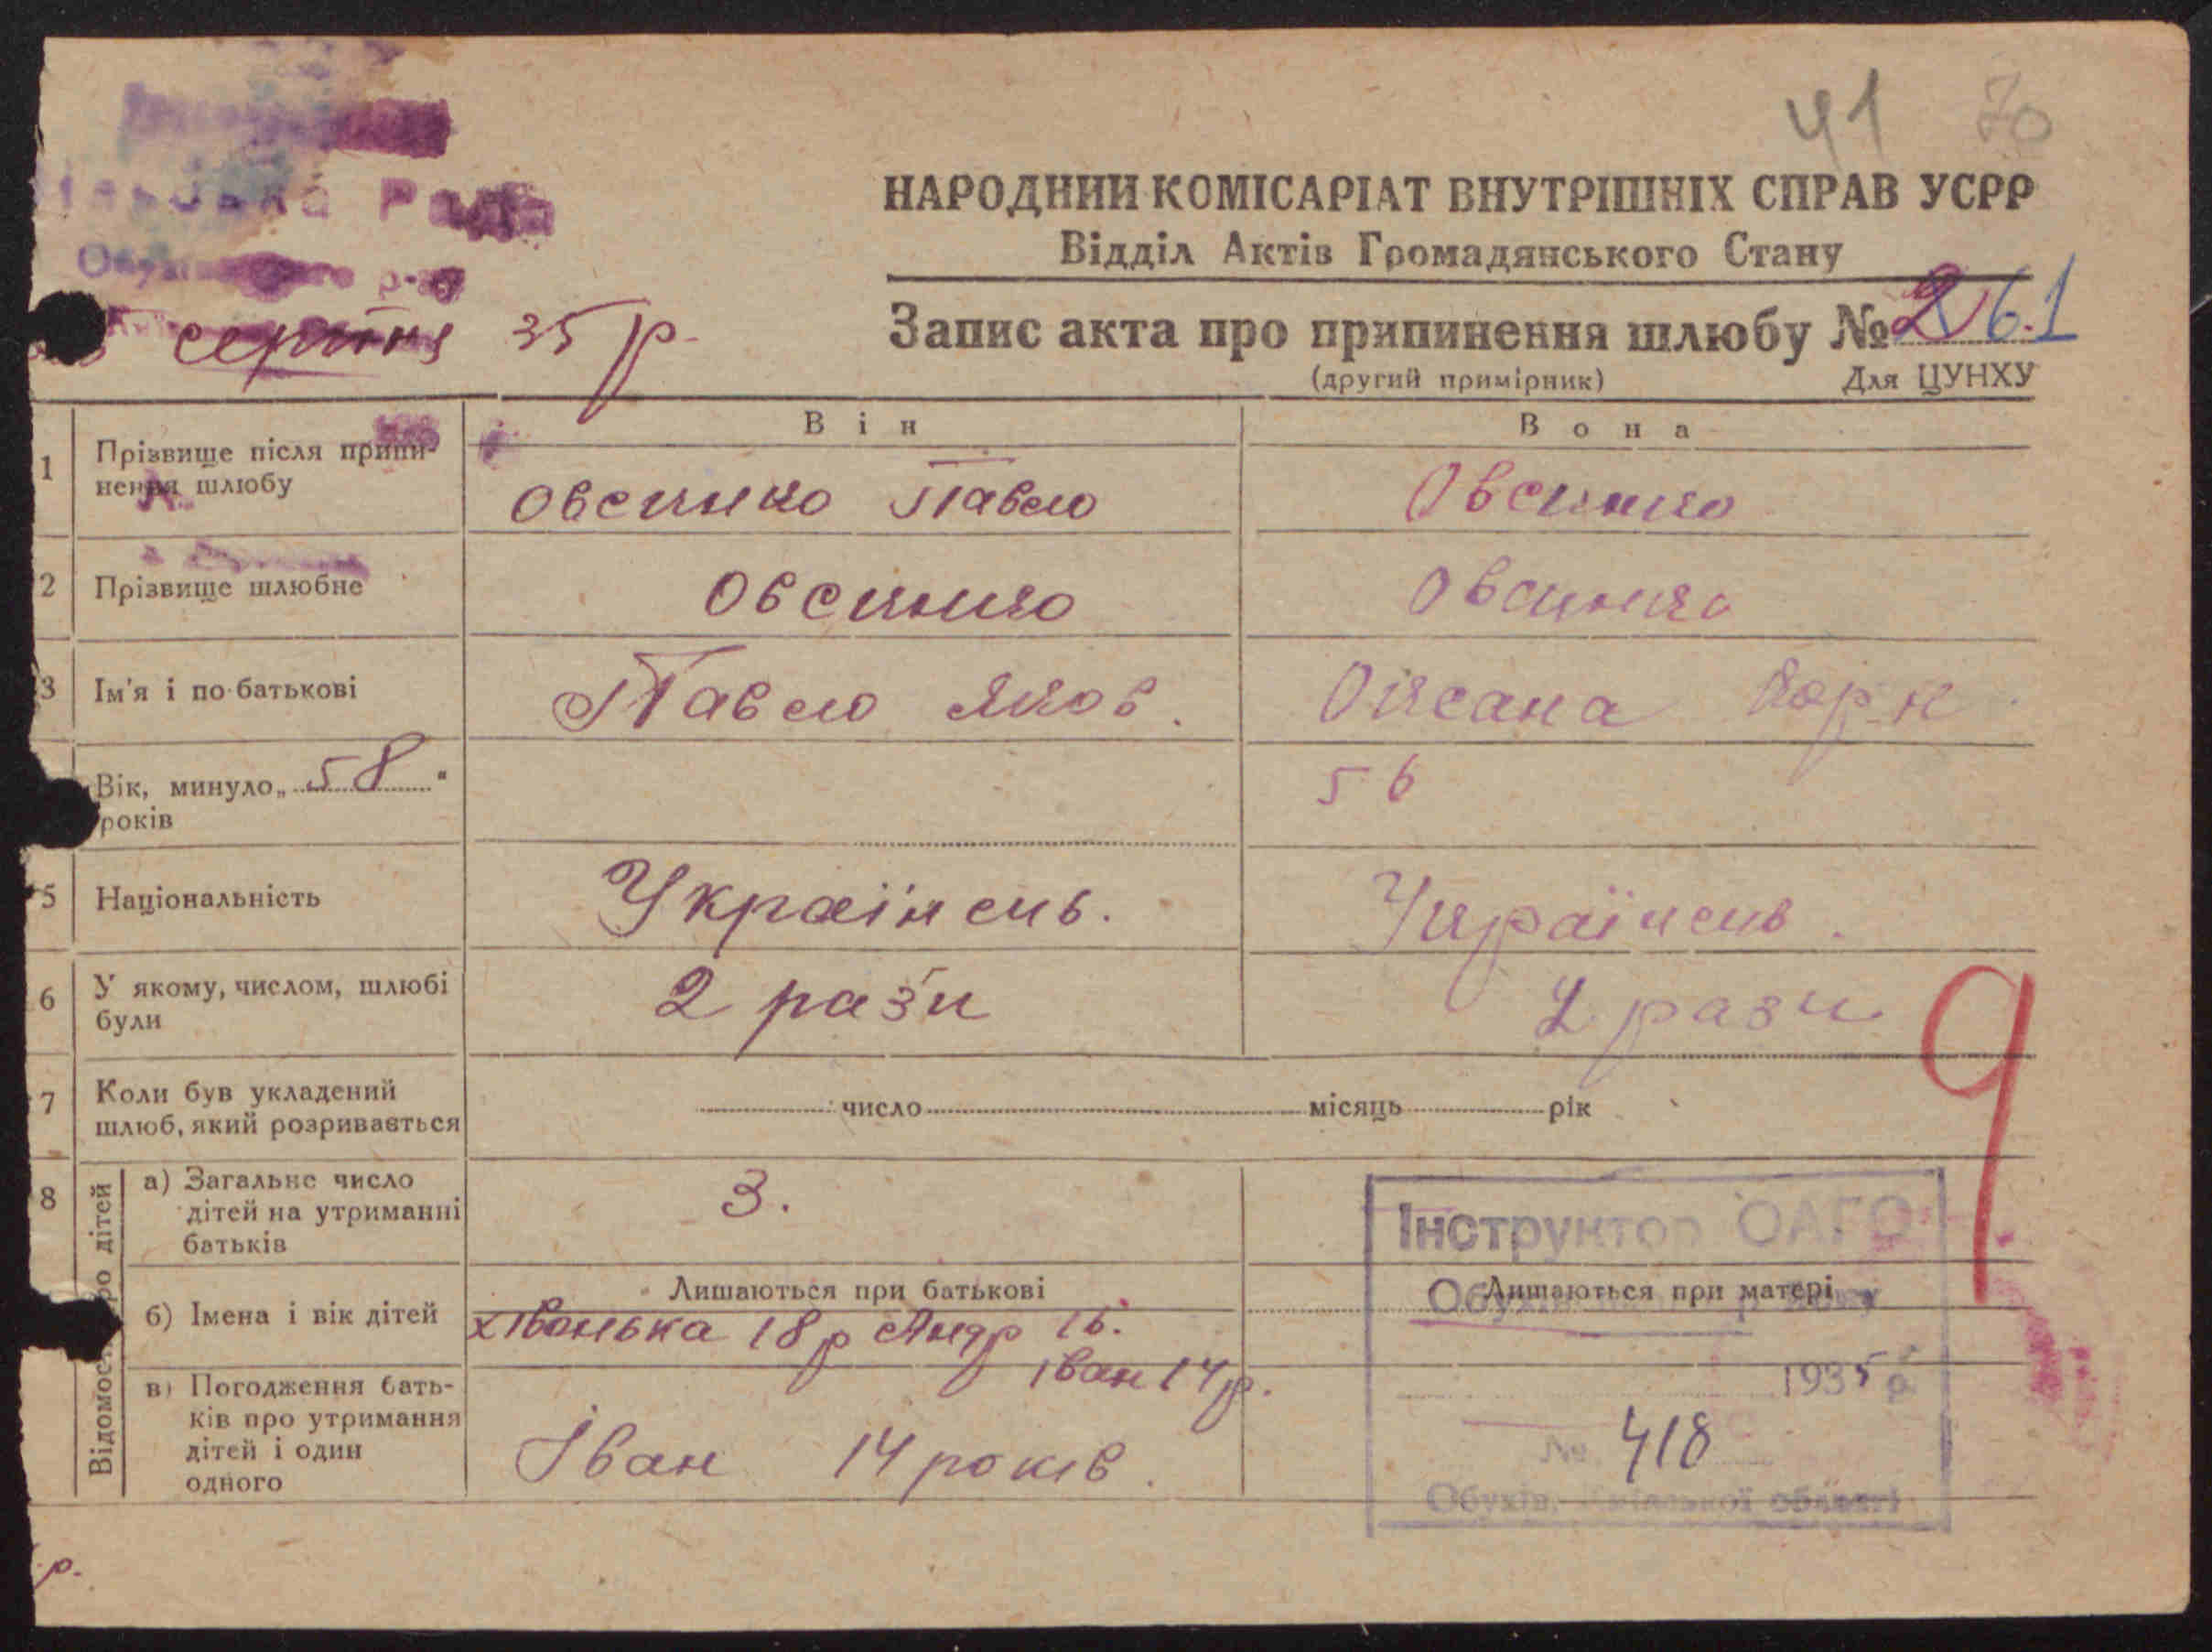 41 70
Рада
НАРОДНИЙ КОМІСАРІАТ ВНУТРІШНІХ СПРАВ УСРР
Відділ Актів Громадянського Стану
серпня 35 р.
Запис акта про припинення шлюбу №
61
(другий примірник) Для ЦУНХУ
Він Вона
1 Прізвище після припи-
нення шлюбу
Овсинко Павло Овсинко
2 Прізвище шлюбне Овсинко Овсинко
3 Ім'я і по-батькові Павло Яков. Оксана
Вік, минуло „58“
років
56
5 Національність Українець. Українець.
6 У якому, числом, шлюбі
були
2 рази 2 рази
9
7 Коли був укладений
шлюб, який розривається
число місяць рік
8 Відомості про дітей
а) Загальне число
дітей на утриманні
батьків
3.
Інструктор ОАГС
Лишаються при батькові Лишаються при матері
б) Імена і вік дітей
18 р Андр 16.
Іван 14 р.
в) Погодження бать-
ків про утримання
дітей і один
одного
Іван 14 років.
1935 р
№ 418
Обухів, Київської області
р.